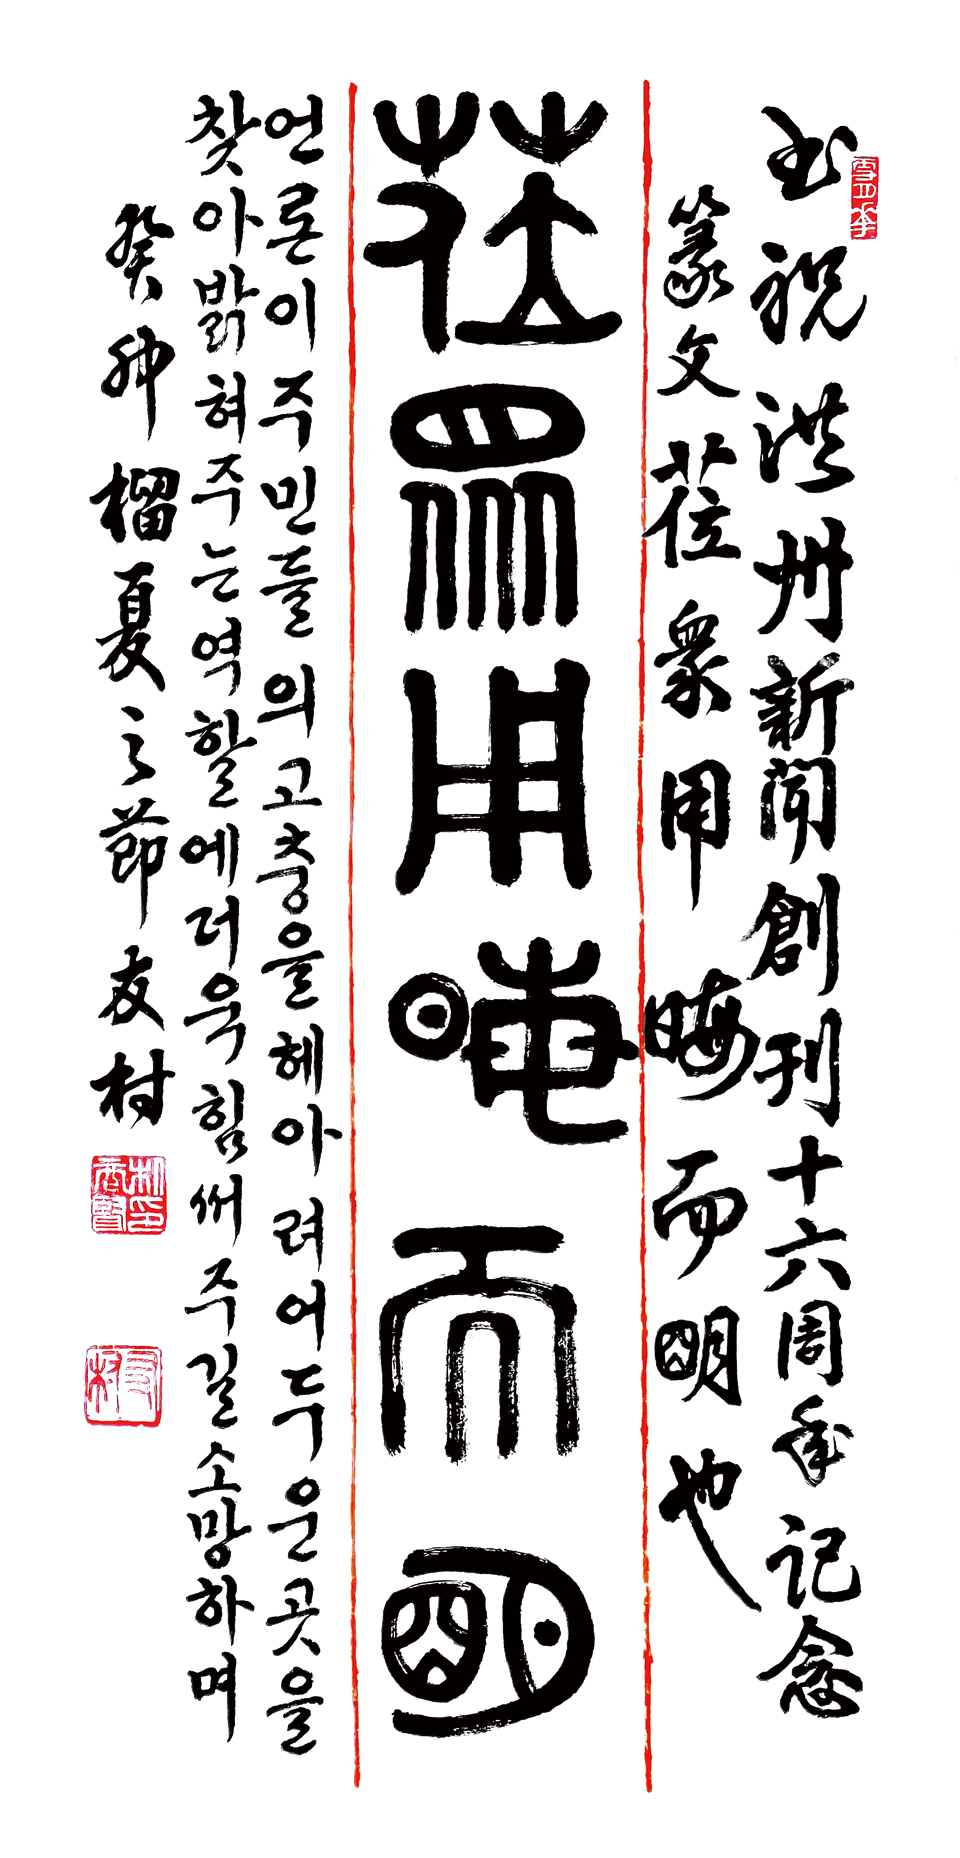 书祝 洪州新聞創刊十六周年记念
篆文 莅衆用晦而明也
莅衆用晦而明
언론이 주민들의 고충을 헤아려 어두운 곳을
찾아 밝혀주는 역할에 더욱 힘써주길 소망하며
癸卯榴夏之節 友村
友村